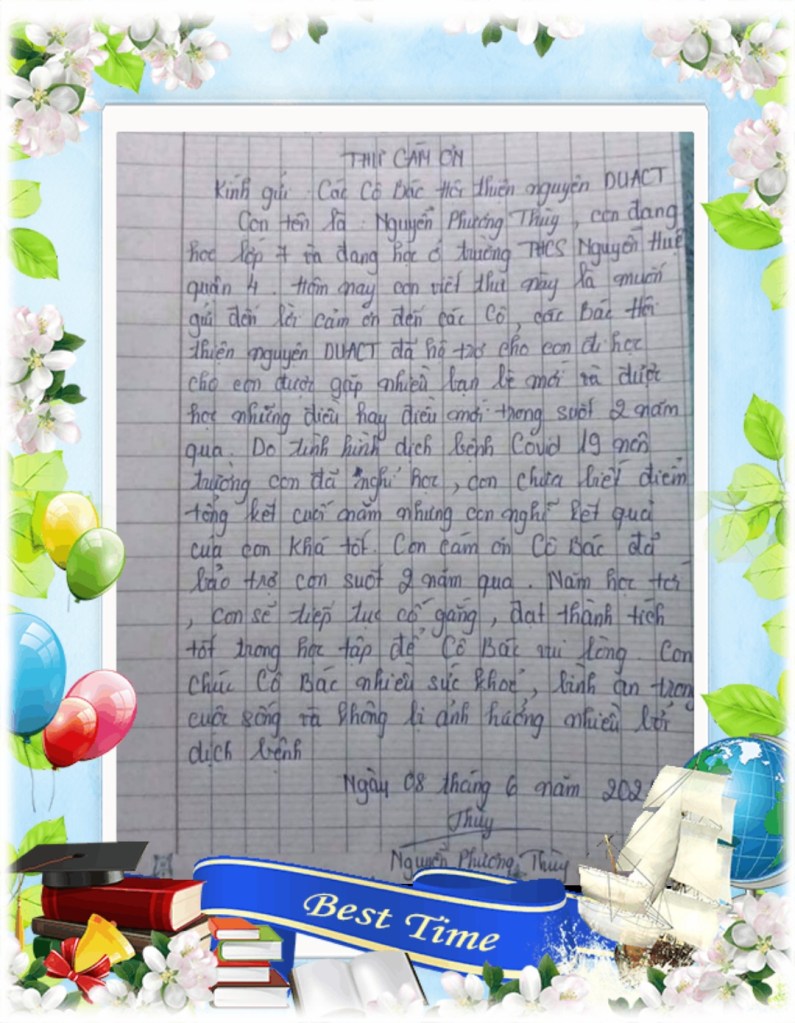 THƯ CẢM ƠN
Kính gửi : Các Cô Bác Hội thiện nguyện DUACT
Con tên là : Nguyễn Phương Thùy , con đang
học lớp 7 và đang học ở trường THCS Nguyễn Huệ
quận 4 . Hôm nay con viết thư này là muốn
gửi đến lời cảm ơn đến các Cô , các Bác Hội
thiện nguyện DUACT đã hỗ trợ cho con đi học
cho con được gặp nhiều bạn bè mới và được
học những điều hay điều mới trong suốt 2 năm
qua . Do tình hình dịch bệnh Covid 19 nên
trường con đã nghỉ học , con chưa biết điểm
tổng kết cuối năm nhưng con nghĩ kết quả
của con khá tốt . Con cảm ơn Cô Bác đã
bảo trợ con suốt 2 năm qua . Năm học tới
, con sẽ tiếp tục cố gắng , đạt thành tích
tốt trong học tập để Cô Bác vui lòng . Con
chúc Cô Bác nhiều sức khoẻ , bình an trong
cuộc sống và không bị ảnh hưởng nhiều bởi
dịch bệnh
Ngày 08 tháng 6 năm 202
Thùy
Nguyễn Phương Thùy
Best Time